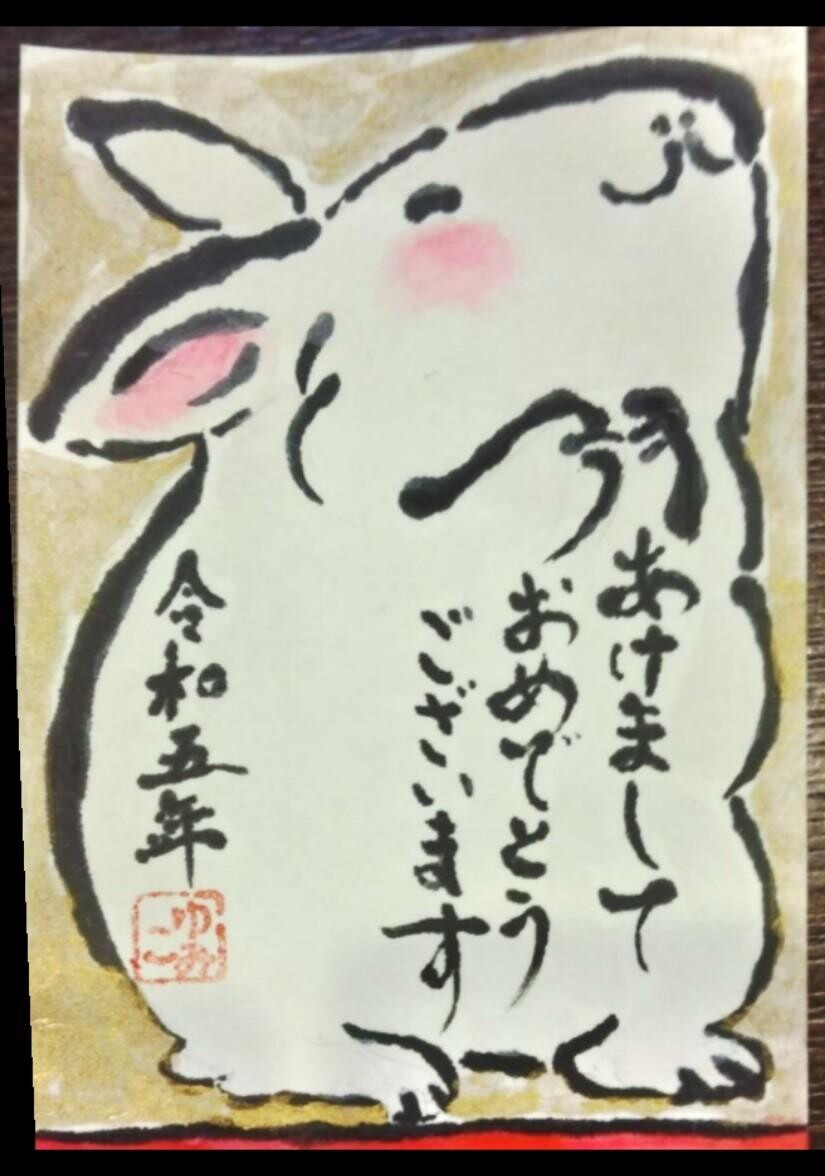 あけまして
おめでとう
ございます
令和五年
ゆみこ